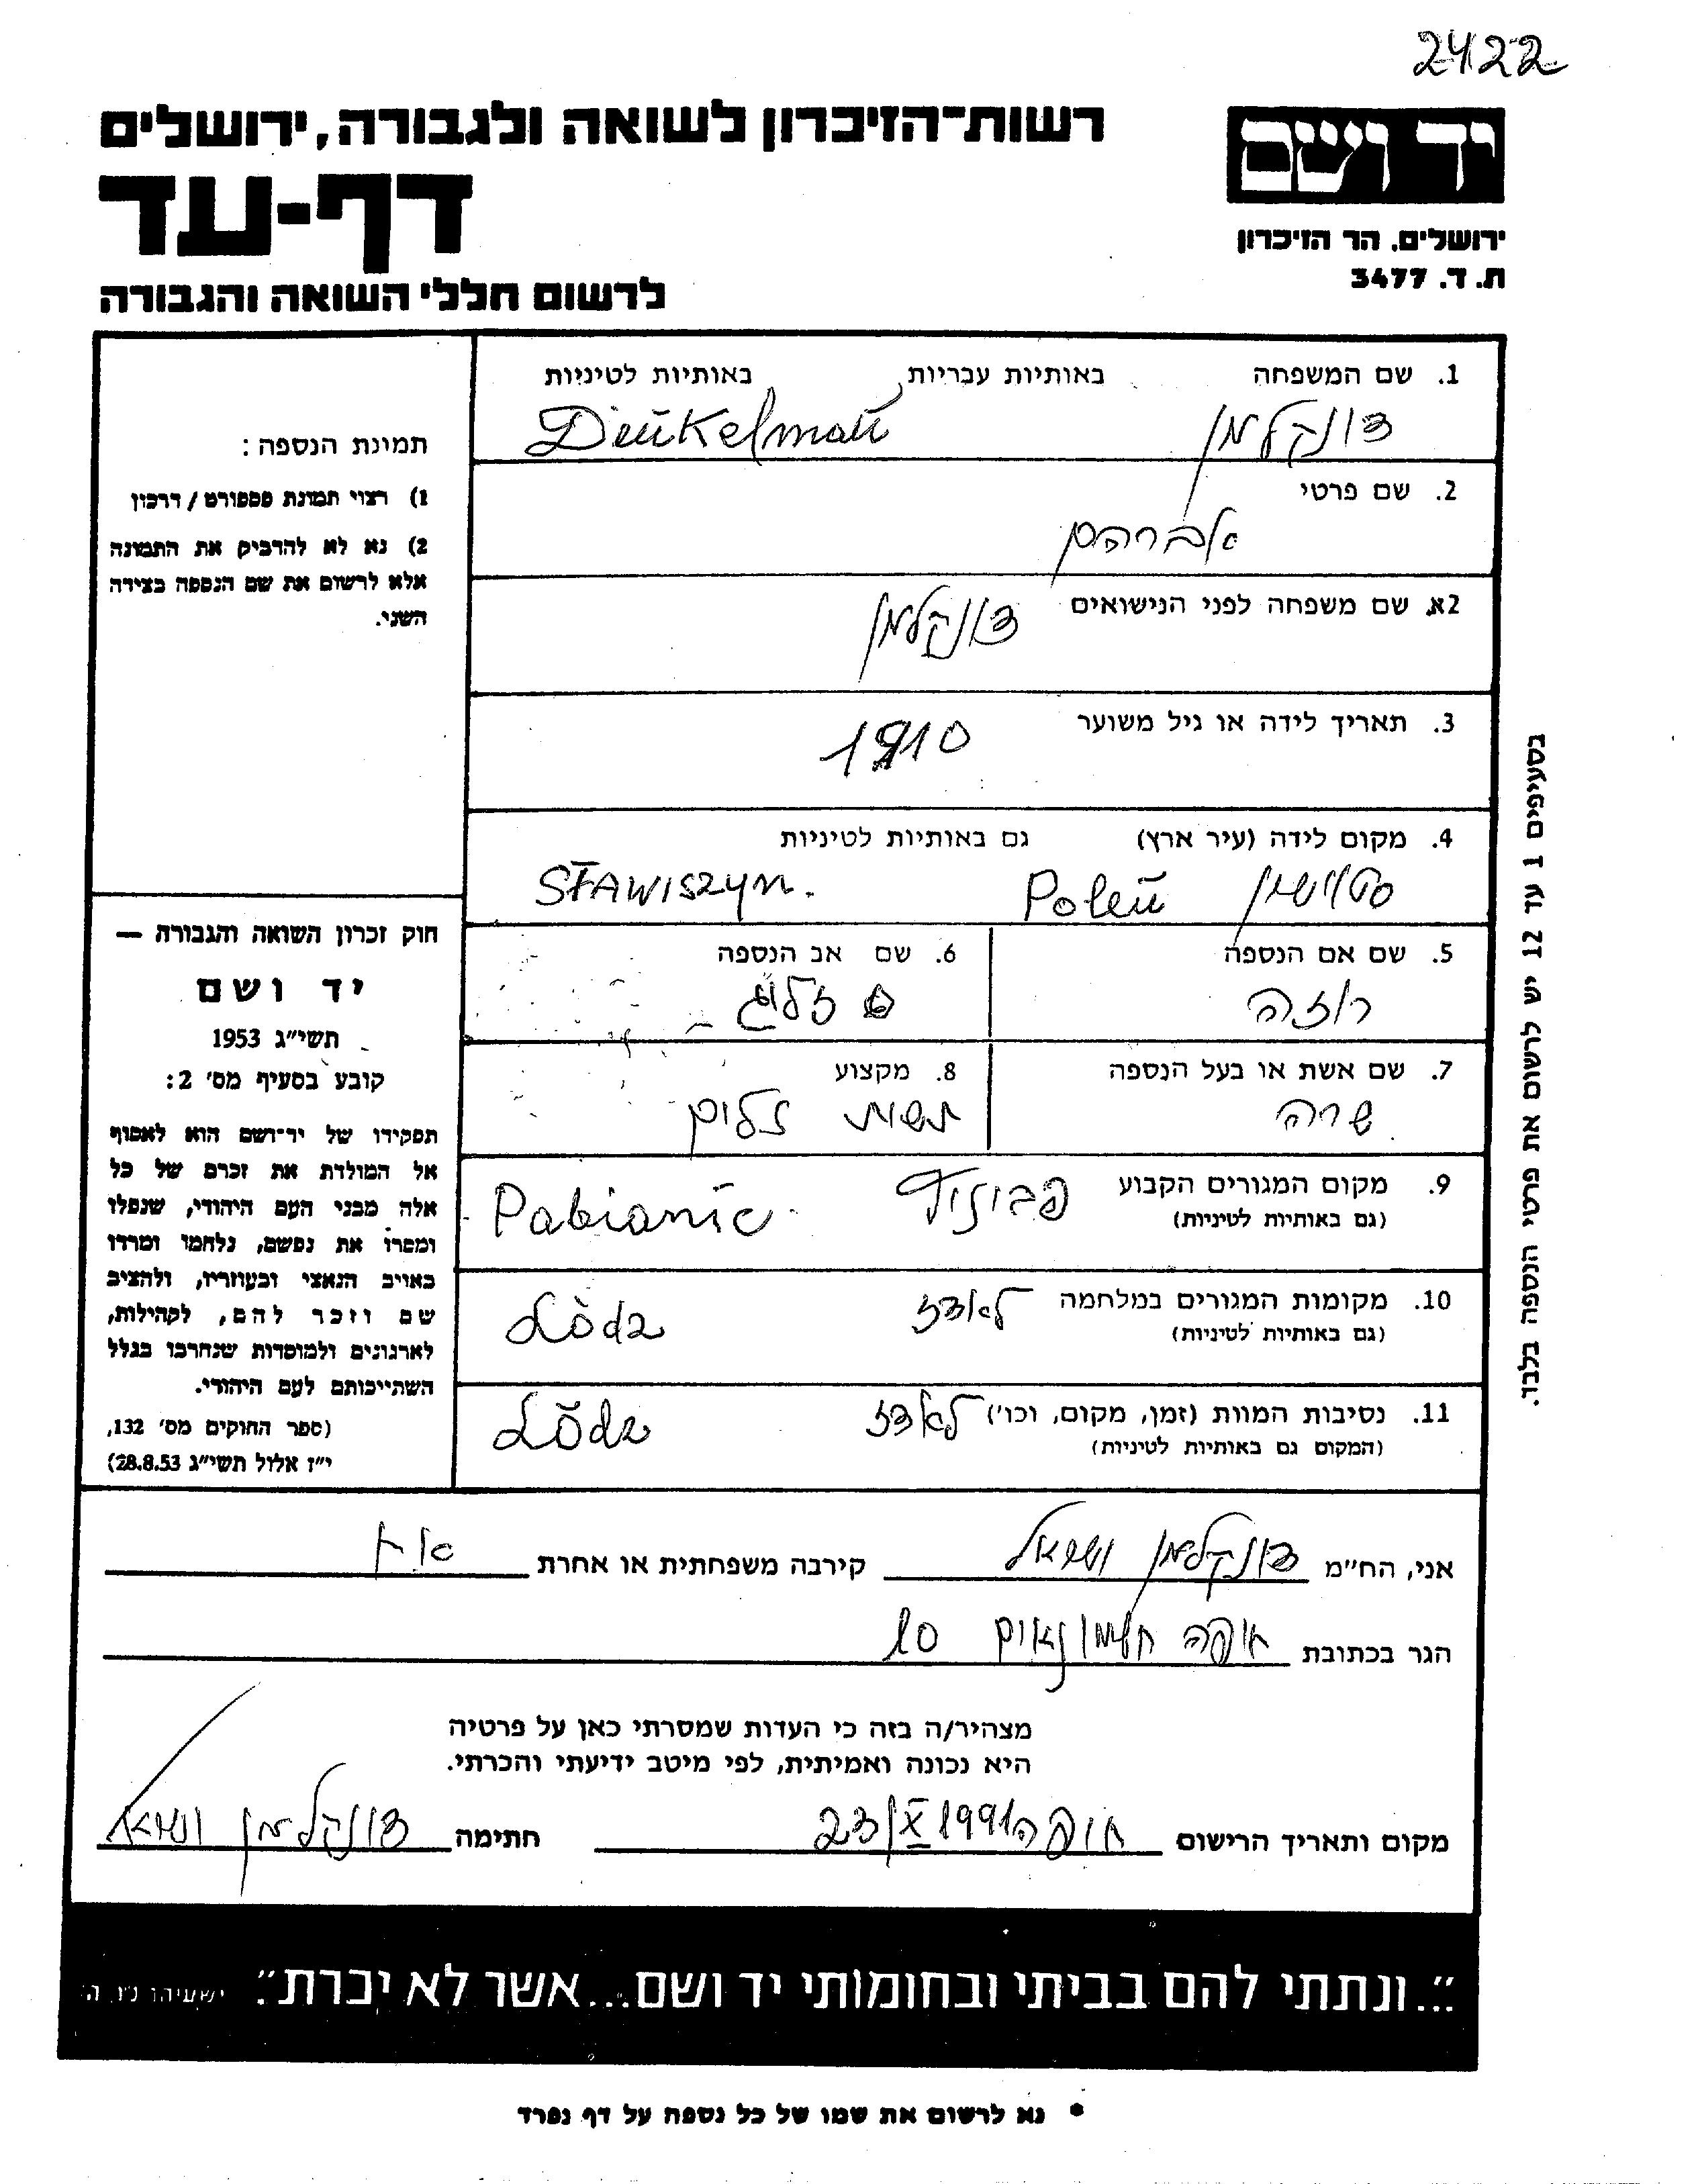 2422
רשות־הזיכרון לשואה ולגבורה, ירושלים
יד ושם
דף-עד
ירושלים. הר הזיכרון
ת. ד. 3477
לרשום חללי השואה והגבורה
1. שם המשפחה באותיות עבריות באותיות לטיניות
דונקלמן
2. שם פרטי
אברהם
2א. שם משפחה לפני הנישואים
דונקלמן
3. תאריך לידה או גיל משוער
1910
4. מקום לידה (עיר ארץ) גם באותיות לטיניות
Polen STAWISZYN.
5. שם אם הנספה
רוזה
6. שם אב הנספה
זליג
7. שם אשת או בעל הנספה
שרה
8. מקצוע
9. מקום המגורים הקבוע
(גם באותיות לטיניות)
Pabianic
10. מקומות המגורים במלחמה לאדז Lódz
(גם באותיות לטיניות)
11. נסיבות המוות (זמן, מקום, וכו') לאדז Lódz
(המקום גם באותיות לטיניות)
תמונת הנספה:
1) רצוי תמונת פספורט / דרכון
2) נא לא להדביק את התמונה
אלא לרשום את שם הנספה בצידה
השני.
חוק זכרון השואה והגבורה —
יד ושם
תשי״ג 1953
קובע בסעיף מס' 2:
תפקידו של יד־ושם הוא לאסוף
אל המולדת את זכרם של כל
אלה מבני העם היהודי, שנפלו
ומסרו את נפשם, נלחמו ומרדו
באויב הנאצי ובעוזריו, ולהציב
שם וזכר להם, לקהילות,
לארגונים ולמוסדות שנחרבו בגלל
השתייכותם לעם היהודי.
(ספר החוקים מס' 132,
י״ז אלול תשי״ג 28.8.53)
בסעיפים 1 עד 12 יש לרשום את פרטי הנספה בלבד.
אני, הח״מ דונקלמן קירבה משפחתית או אחרת אח
הגר בכתובת חיפה חשמונאים 10
מצהיר/ה בזה כי העדות שמסרתי כאן על פרטיה
היא נכונה ואמיתית, לפי מיטב ידיעתי והכרתי.
מקום ותאריך הרישום חיפה 23/X 1991 חתימה דונקלמן
״...ונתתי להם בביתי ובחומותי יד ושם...אשר לא יכרת״. ישעיהו נ״ו, ה'
* נא לרשום את שמו של כל נספה על דף נפרד